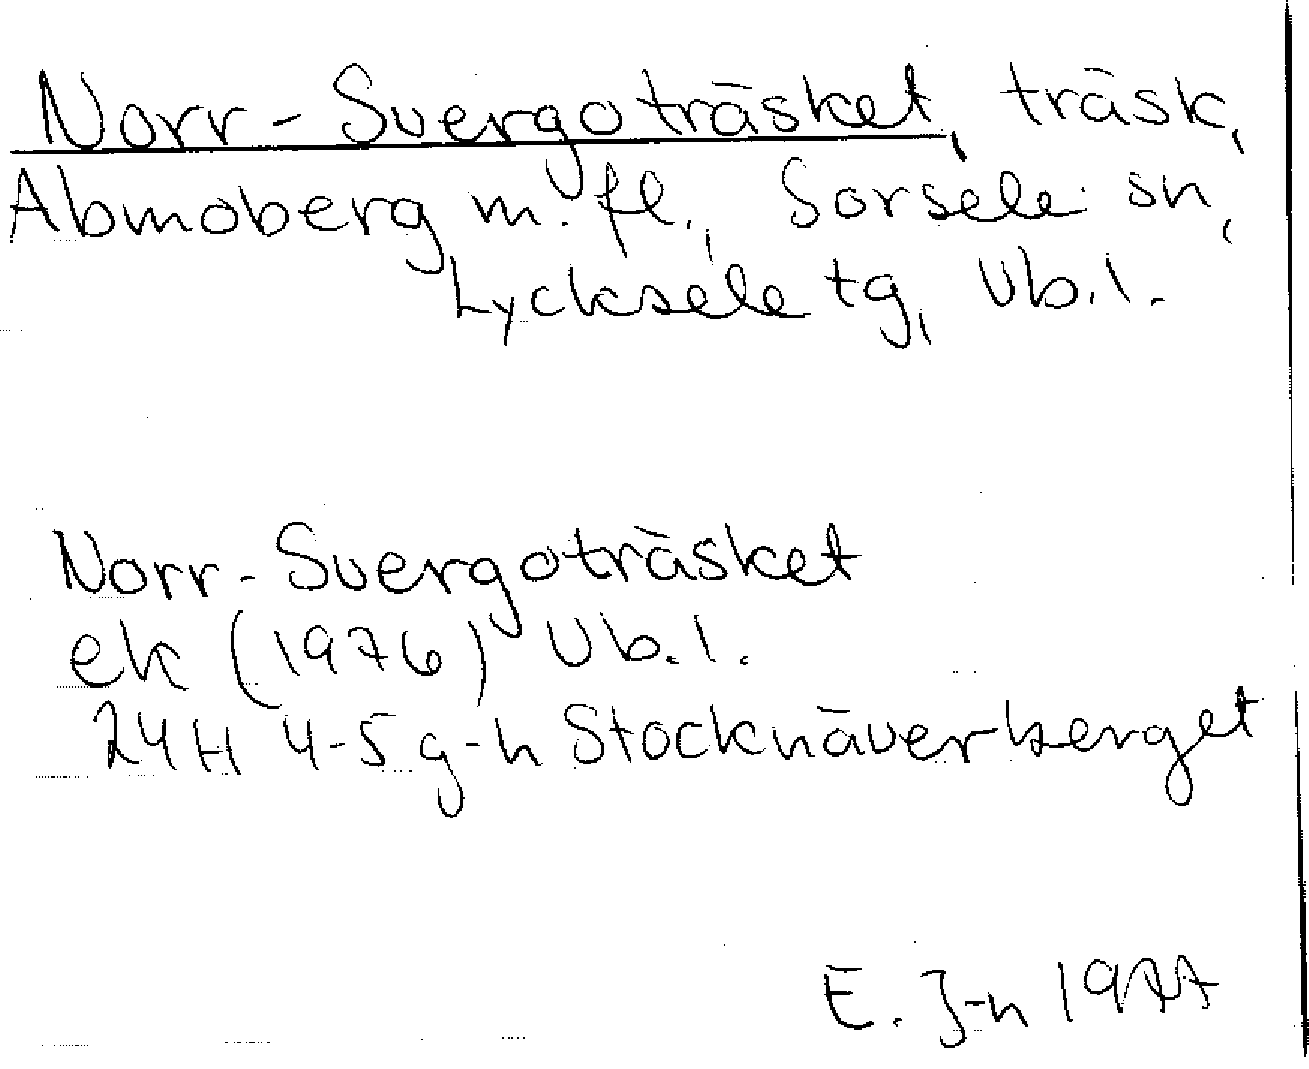 Norr-Svergoträsket, träsk,
Abmoberg m. fl., Sorsele sn,
Lycksele tg, Vb.l.
Norr-Svergoträsket
ek (1976) Vb.l.
24H 4-5 g-h Stocknäverberget
E. J-n 1977